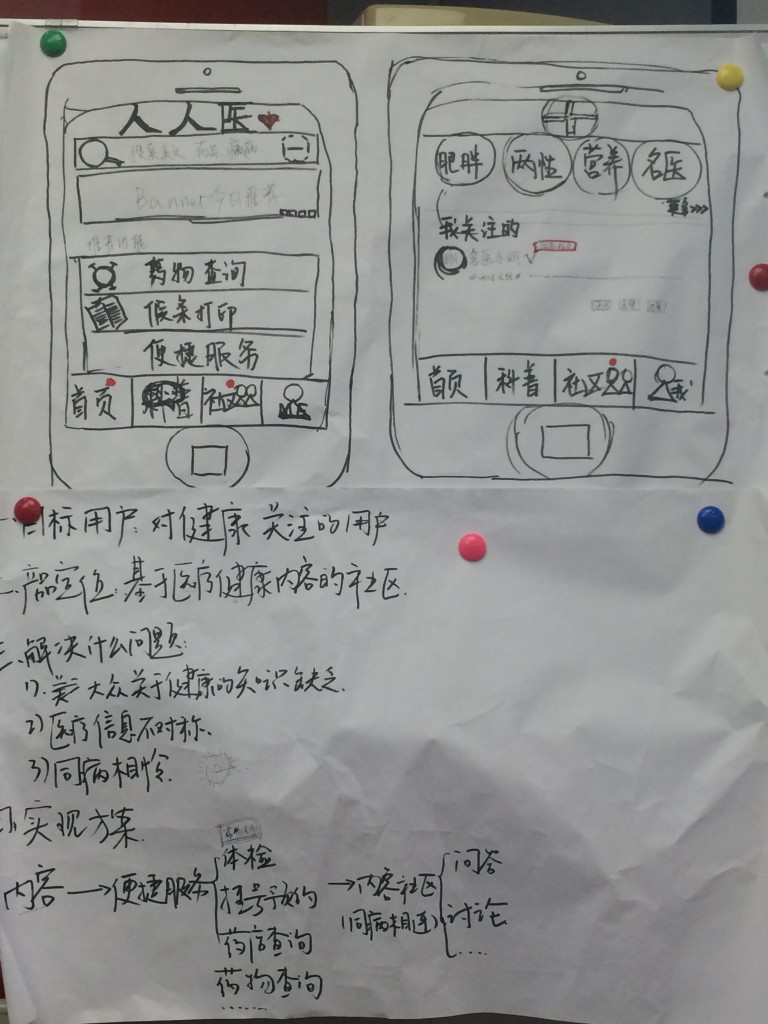 人人医
Banner今日推荐
推荐功能
药物查询
假条打印
便捷服务
首页 科普 社区
肥胖 两性 营养 名医
更多>>>
我关注的
首页 科普 社区 我
一.目标用户：对健康关注的用户
二.产品定位：基于医疗健康内容的社区.
三.解决什么问题：
1).大众关于健康的知识缺乏.
2)医疗信息不对称.
3)同病相怜.
四.实现方案.
内容→便捷服务
体检
挂号预约
药店查询
药物查询
......
→内容社区
(同病相连)
问答
讨论
....